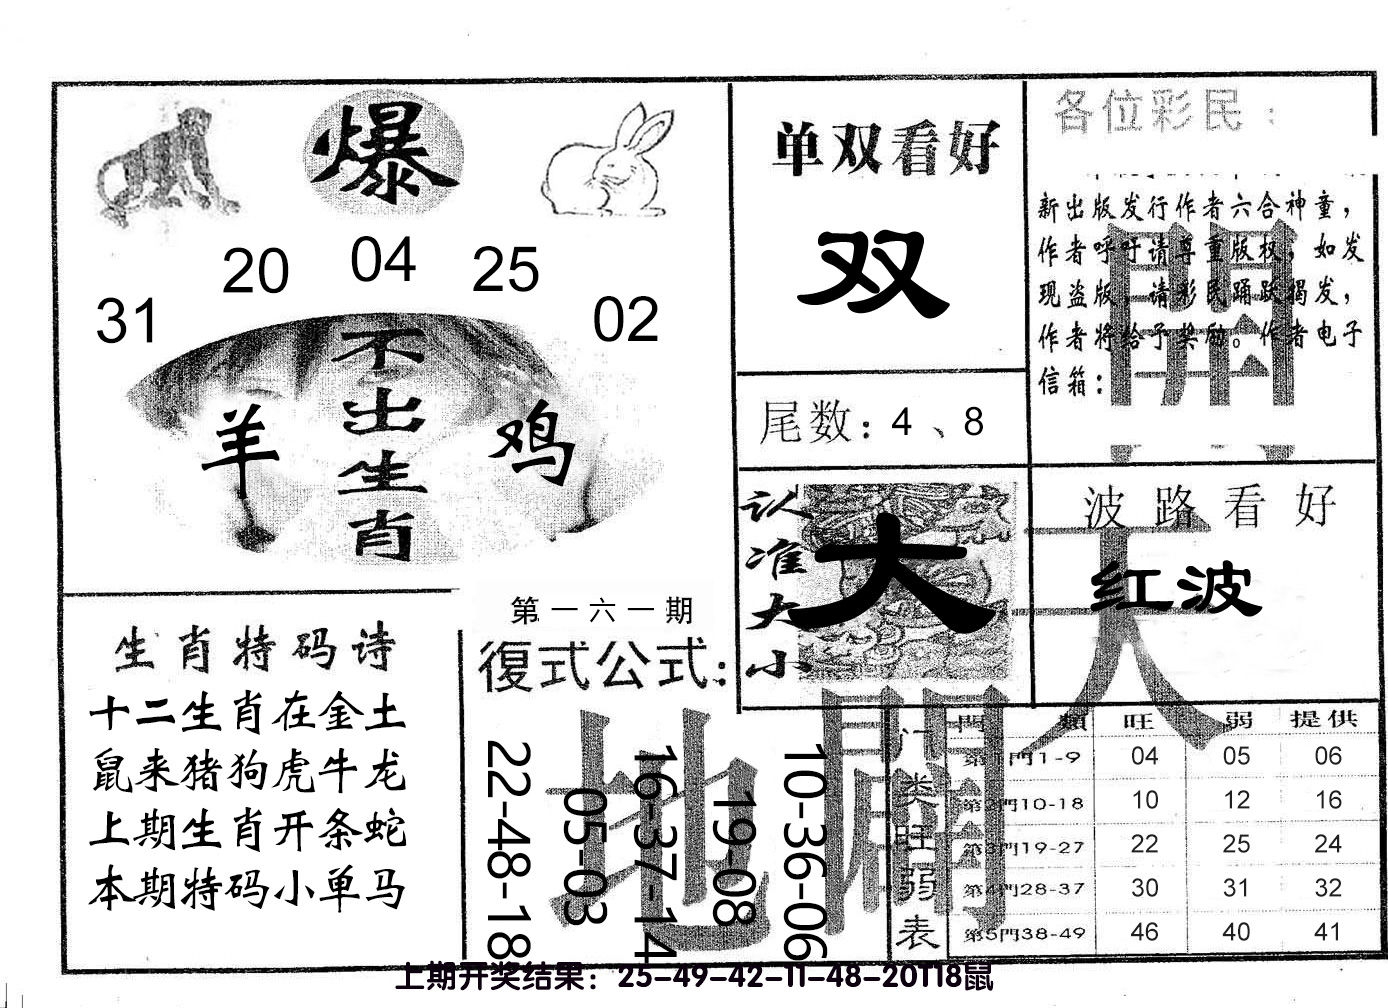 爆
31 20 04 25 02
不出生肖
羊 鸡
单双看好
双
尾数：4、8
各位彩民：
新出版发行作者六合神童，
作者呼吁请尊重版权，如发
现盗版，请彩民踊跃揭发，
作者将给予奖励。作者电子
信箱：
認准大小
大
波路看好
红波
生肖特码诗
十二生肖在金土
鼠来猪狗虎牛龙
上期生肖开条蛇
本期特码小单马
第一六一期
復式公式：
22-48-18
05-03
16-37-14
19-08
10-36-06
天
地
開
门类旺弱表
門類 旺 弱 提供
第1門1-9 04 05 06
第2門10-18 10 12 16
第3門19-27 22 25 24
第4門28-37 30 31 32
第5門38-49 46 40 41
上期开奖结果：25-49-42-11-48-20T18鼠